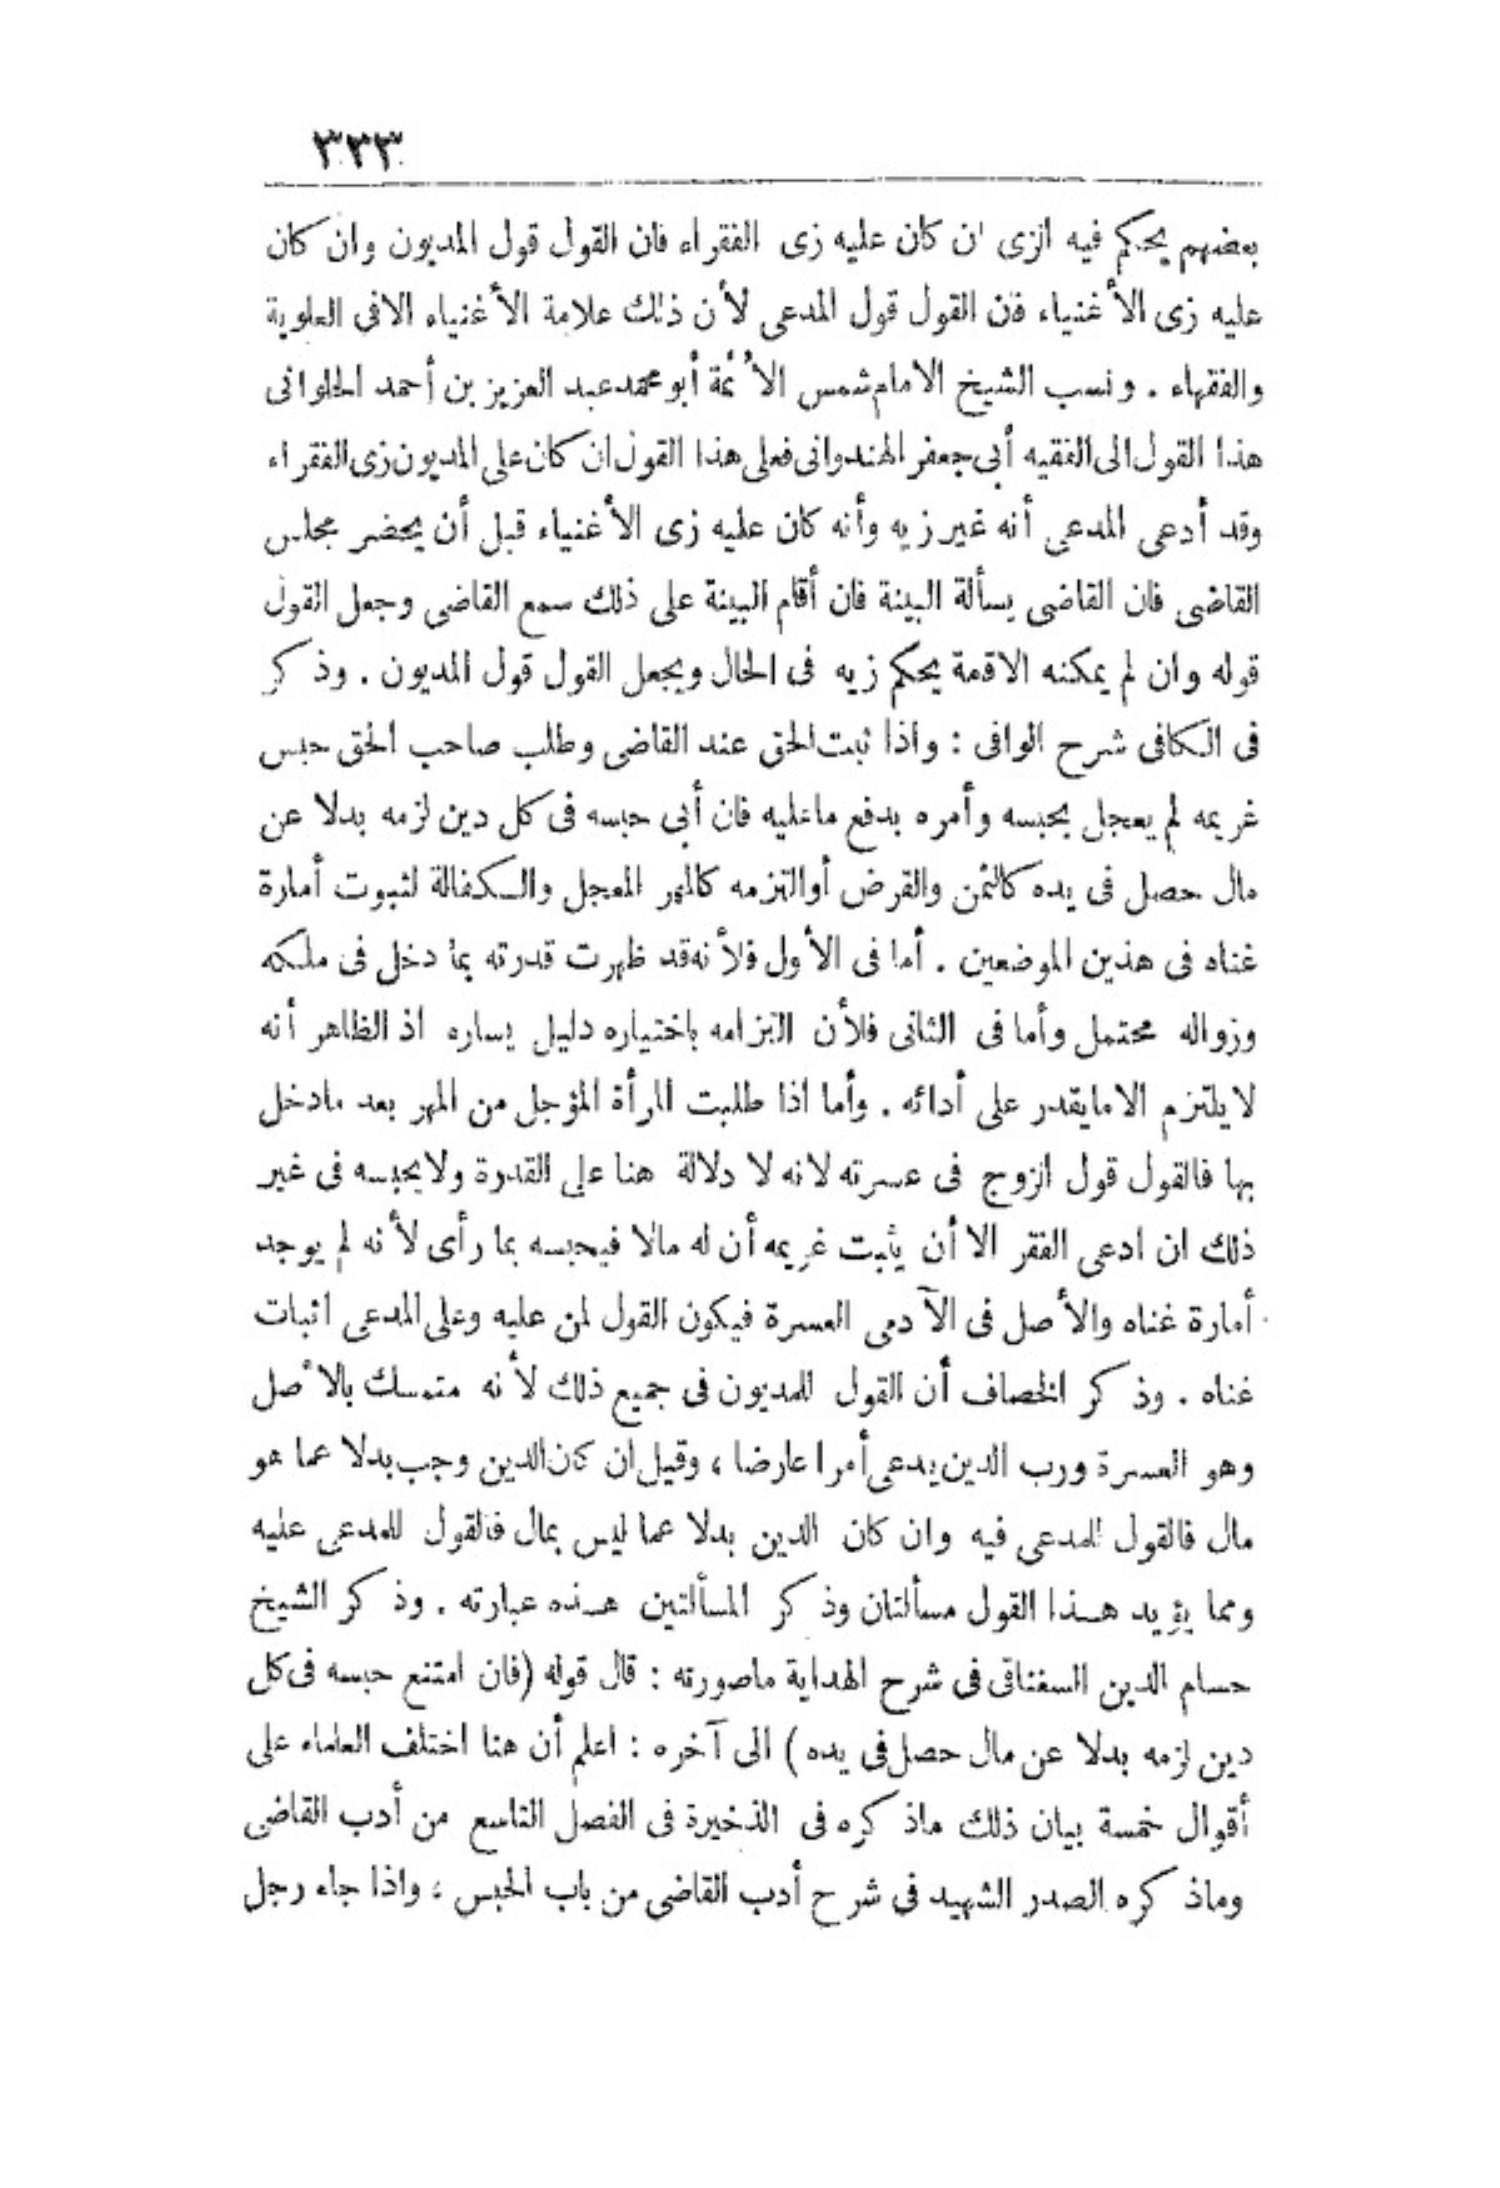 ٣٣٣
بعضهم يحكم فيه الزى ان كان عليه زى الفقراء فان القول قول المديون وان كان
عليه زى الأغنياء فان القول قول المدعى لأن ذلك علامة الأغنياء الا فى العلوية
والفقهاء . ونسب الشيخ الامام شمس الأئمة أبو محمد عبد العزيز بن أحمد الحلوانى
هذا القول الى الفقيه أبى جعفر الهندوانى فعلى هذا القول ان كان على المديون زى الفقراء
وقد أدعى المدعى أنه غير زيه وأنه كان عليه زى الأغنياء قبل أن يحضر مجلس
القاضى فان القاضى يسألة البينة فان أقام البينة على ذلك سمع القاضى وجعل القول
قوله وان لم يمكنه الاقمة يحكم زيه فى الحال ويجعل القول قول المديون . وذكر
فى الكافى شرح الوافى : واذا ثبت الحق عند القاضى وطلب صاحب الحق حبس
غريمه لم يعجل بحبسه وأمره بدفع ما عليه فان أبى حبسه فى كل دين لزمه بدلا عن
مال حصل فى يده كالثمن والقرض أو التزمه كالمهر المعجل والكفالة لثبوت أمارة
غناه فى هذين الموضعين . أما فى الأول فلأنه قد ظهرت قدرته بما دخل فى ملكه
وزواله محتمل وأما فى الثانى فلأن التزامه باختياره دليل يساره اذ الظاهر أنه
لا يلتزم الا ما يقدر على أدائه . وأما اذا طلبت المرأة المؤجل من المهر بعد ما دخل
بها فالقول قول الزوج فى عسرته لانه لا دلالة هنا على القدرة ولا يحبسه فى غير
ذلك ان ادعى الفقر الا أن يثبت غريمه أن له مالا فيحبسه بما رأى لأنه لم يوجد
أمارة غناه والأصل فى الآدمى العسرة فيكون القول لمن عليه وعلى المدعى اثبات
غناه . وذكر الخصاف أن القول للمديون فى جميع ذلك لأنه متمسك بالأصل
وهو العسرة ورب الدين يدعى أمرا عارضا ، وقيل ان كان الدين وجب بدلا عما هو
مال فالقول للمدعى فيه وان كان الدين بدلا عما ليس بمال فالقول للمدعى عليه
ومما يؤيد هذا القول مسألتان وذكر المسألتين هذه عبارته . وذكر الشيخ
حسام الدين السغناقى فى شرح الهداية ما صورته : قال قوله (فان امتنع حبسه فى كل
دين لزمه بدلا عن مال حصل فى يده) الى آخره : اعلم أن هنا اختلف العلماء على
أقوال خمسة بيان ذلك ماذكره فى الذخيرة فى الفصل التاسع من أدب القاضى
وماذكره الصدر الشهيد فى شرح أدب القاضى من باب الحبس ، واذا جاء رجل